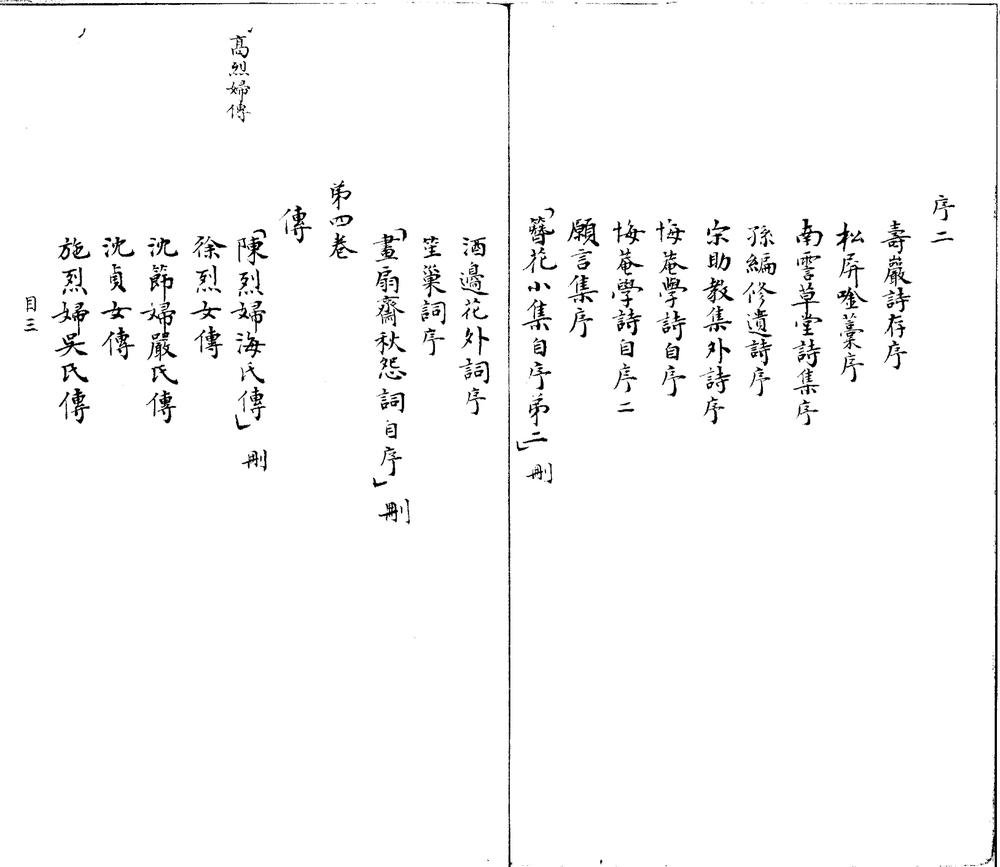 序二
壽巖詩存序
松屏唫藁序
南雩草堂詩集序
孫編修遺詩序
宗助教集外詩序
悔菴學詩自序
悔菴學詩自序二
願言集序
「簪花小集自序弟二」刪
酒邊花外詞序
笙巢詞序
「畫扇齋秋怨詞自序」刪
弟四卷
傳
「陳烈婦海氏傳」刪
高烈婦傳
徐烈女傳
沈節婦嚴氏傳
沈貞女傳
施烈婦吳氏傳
目三